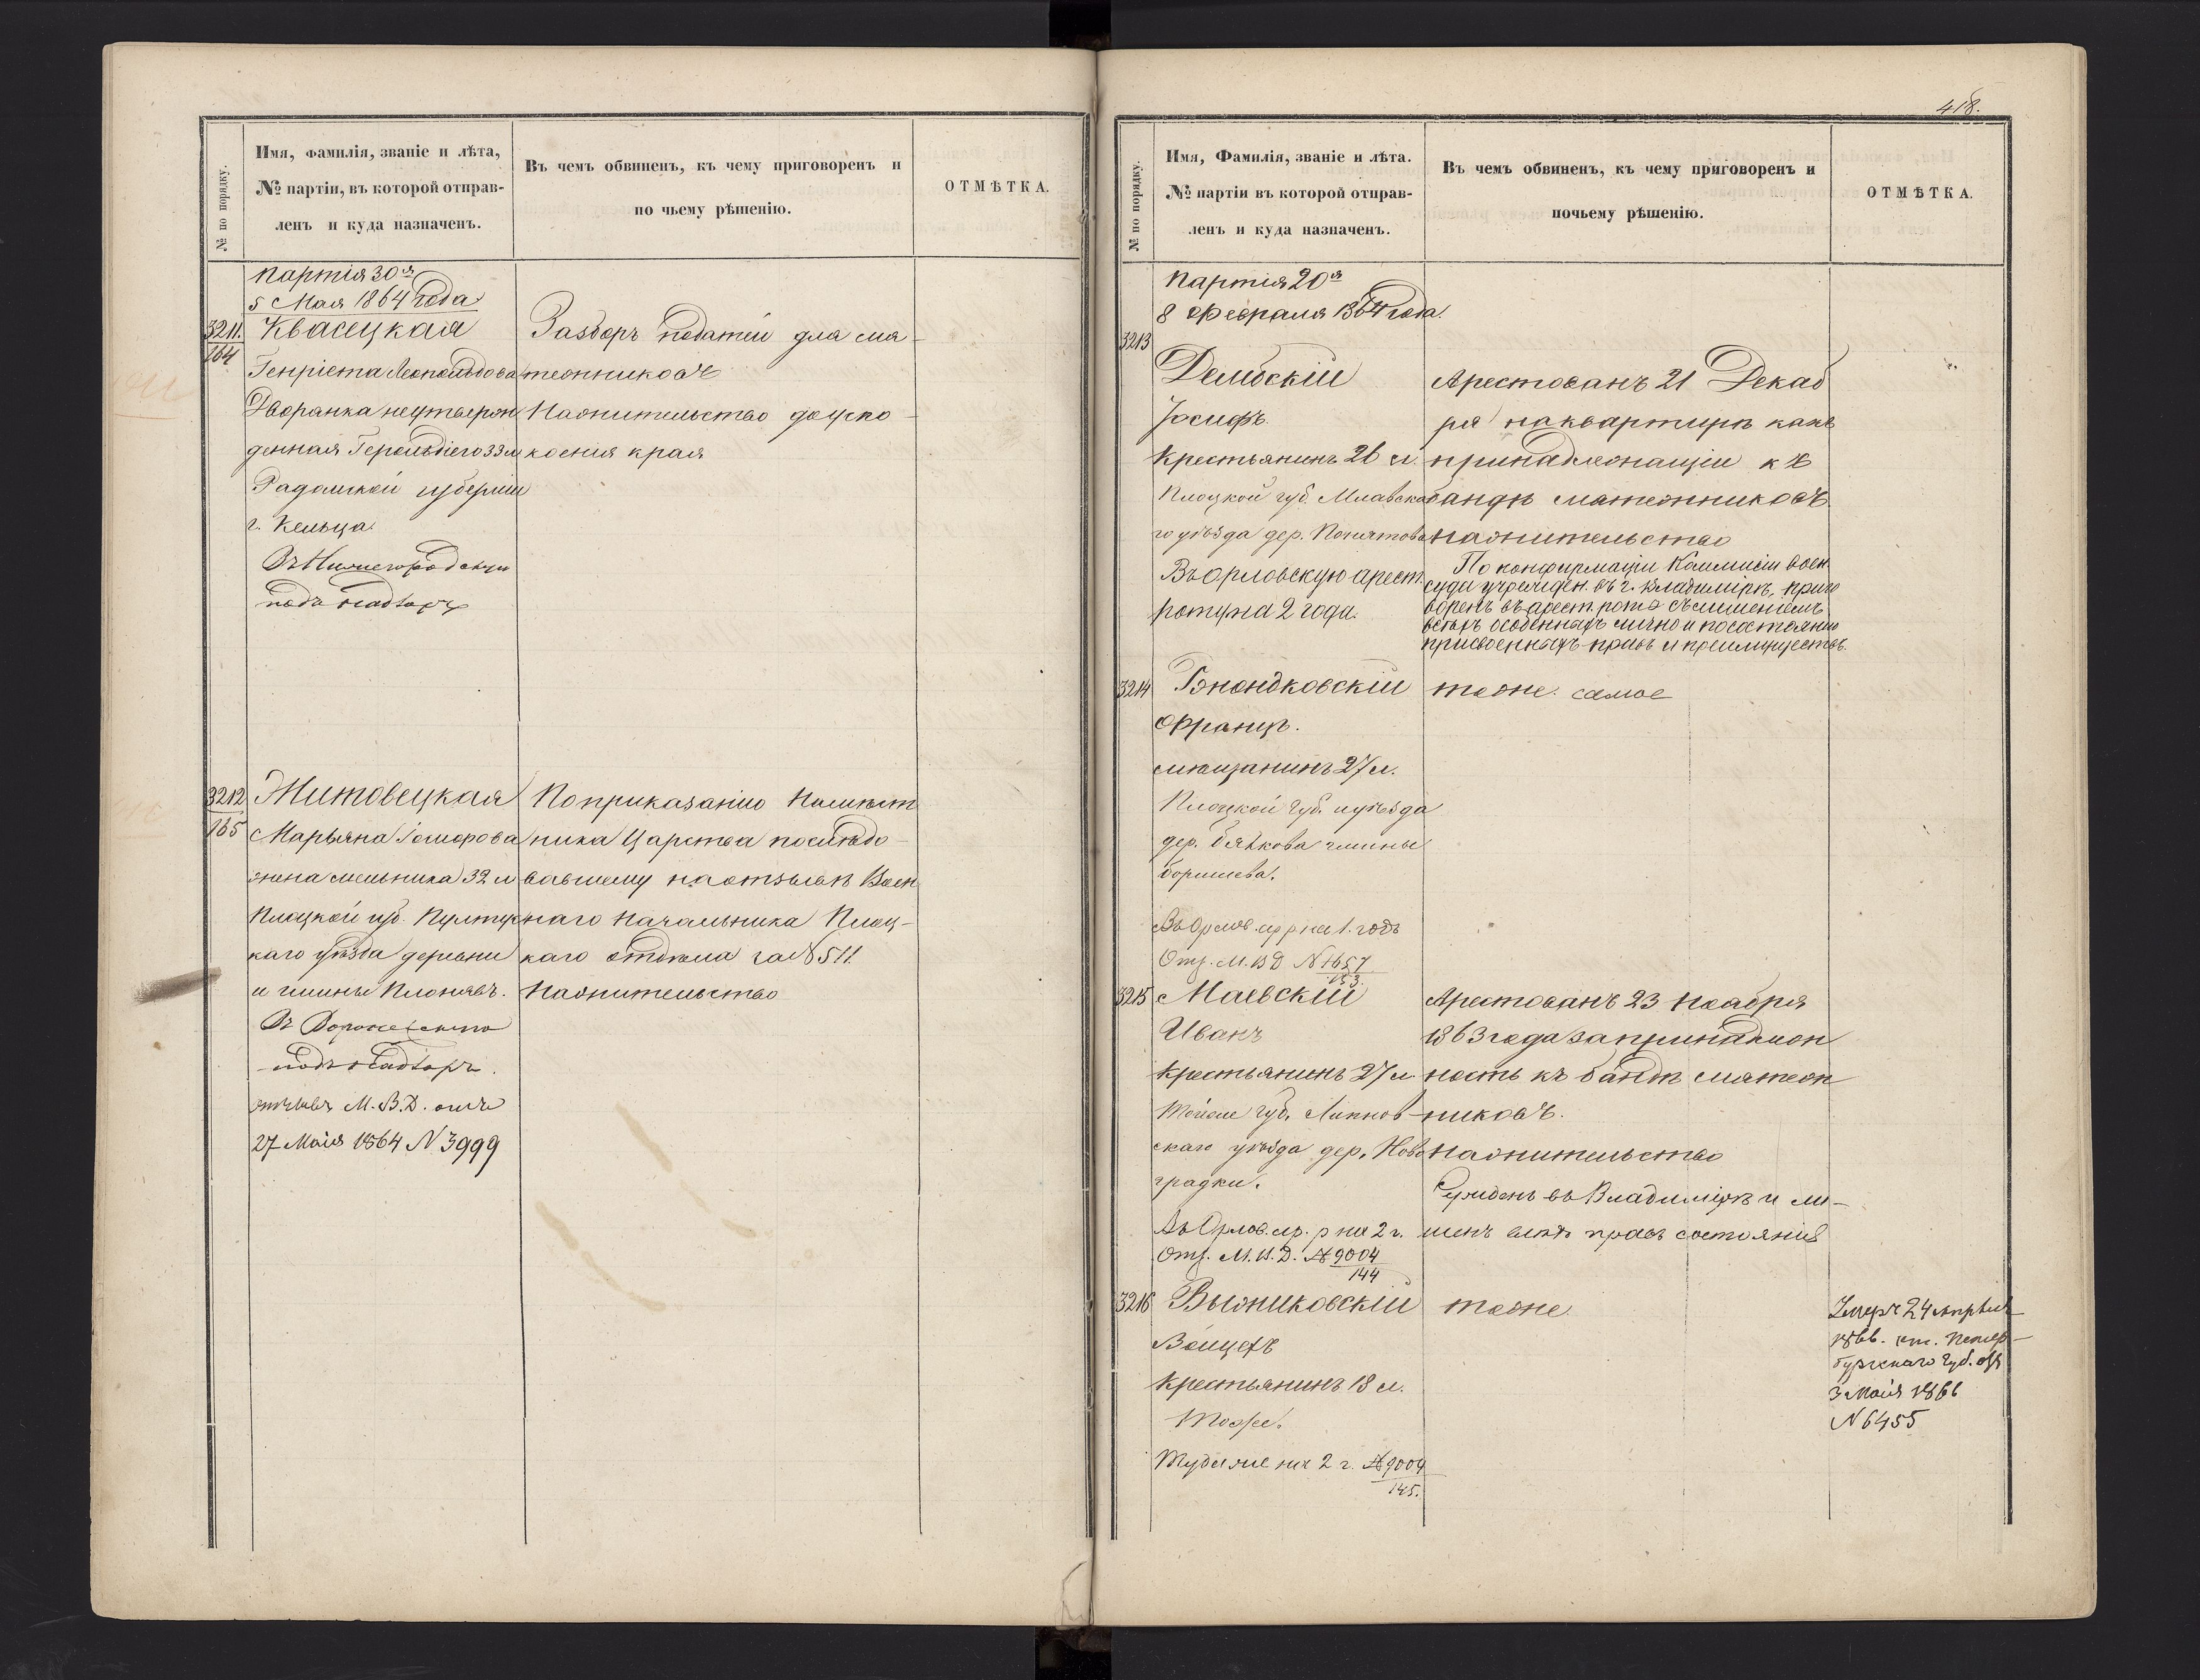 № по порядку.
Имя, фамилія, званіе и лѣта,
№ партіи, въ которой отправ-
ленъ и куда назначенъ.
Въ чемъ обвиненъ, къ чему приговоренъ и
по чьему рѣшенію.
ОТМѢТКА.
Партія 30я
5 Мая 1864 года
3211.
164
Квасецкая
Генріета Леопольдова
Дворянка неутверж
денная Герольдіею 33 л
Радомской губерніи
г. Кельца.
Въ Нижегородскую
подъ надзоръ
Разборъ податей для мя-
тежниковъ
Нажительство до успо-
коенія края
3212
165
Житовецкая
Марьяна
жена мельника 32 л
Плоцкой губ. Пултус
каго уѣзда деревни
и гмины
Въ Воронежскую
подъ надзоръ.
М.В.Д. отъ
27 Маія 1864 N 3999
По приказанію Намѣст
ника Царства послѣдо-
вавшему на отзывъ Воен
наго Начальника Плоц-
каго отдѣла за N 511.
Нажительство
418.
№ по порядку.
Имя, Фамилія, званіе и лѣта.
№ партіи въ которой отправ-
ленъ и куда назначенъ.
Въ чемъ обвиненъ, къ чему приговоренъ и
почьему рѣшенію.
ОТМѢТКА.
Партія 20я
8 Февраля 1864 года.
3213
Дембскій
Іосифъ.
Крестьянинъ 26 л.
Плоцкой губ. Млавска
го уѣзда дер.
Въ Орловскую арест.
роту на 2 года.
Арестованъ 21 Декаб
ря на квартирѣ какъ
принадлежащій къ
бандѣ мятежниковъ
нажительство
По конфирмаціи Коммисіи воен.
суда учрежден. въ г. Владимірѣ, приго
воренъ въ арест. роты съ лишеніемъ
всѣхъ особенныхъ лично и по состоянію
присвоенныхъ правъ и преимуществъ.
3214
Францъ.
мѣщанинъ 27 л.
Плоцкой губ. и уѣзда
дер. гмины
Въ Орлов. ар р на 1. годъ
Отз. М. В Д N 1657
153.
тоже самое
3215
Маевскій
Иванъ
Крестьянинъ 27 л
Тойже губ. Липнов-
скаго уѣзда дер. Ново
градки.
Въ Орлов. ар. р на 2 г.
Отз. М. В. Д. № 9004
144
Арестованъ 23 Ноября
1863 года за принадлеж
ность къ бандѣ мятеж
никовъ.
Нажительство
Сужденъ во Владимірѣ и ли-
шенъ всѣхъ правъ состоянія
3216
Выжиковскій
Войцехъ
Крестьянинъ 18 л.
Тоже.
Туда же на 2 г. № 9004
145.
тоже
Умеръ 24 апрѣля
1866. Петер-
бургскаго Губ.
3 Маія 1866
N 6455